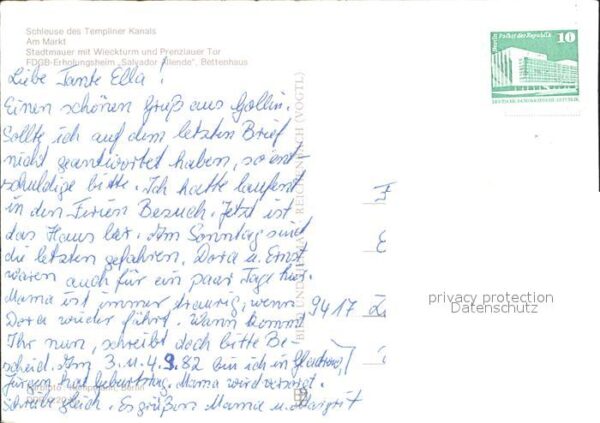 Schleuse des Templiner Kanals
Am Markt
Stadtmauer mit Wieckturm und Prenzlauer Tor
FDGB-Erholungsheim „Salvador Allende", Bettenhaus
Liebe Tante Ella!
Einen schönen Gruß aus Gollin.
Sollte ich auf dem letzten Brief
nicht geantwortet haben, so ent-
schuldige bitte. Ich hatte laufend
in den Ferien Besuch. Jetzt ist
das Haus leer. Am Sonntag sind
die letzten gefahren. Dora u. Ernst
waren auch für ein paar Tage hier.
Mama ist immer traurig, wenn
Dora wieder fährt. Wann kommt
Ihr nun, schreibt doch bitte Be-
scheid. Am 3. u. 4.9.82 bin ich in
Jürgen hat Geburtstag. Mama wird versorgt.
Schreibe gleich. Es grüßen Mama u. Margrit
BILD UND HEIMAT REICHENBACH (VOGTL)
Berlin Palast der Republik
10
DEUTSCHE DEMOKRATISCHE REPUBLIK
F
E
9417 Z
privacy protection
Datenschutz